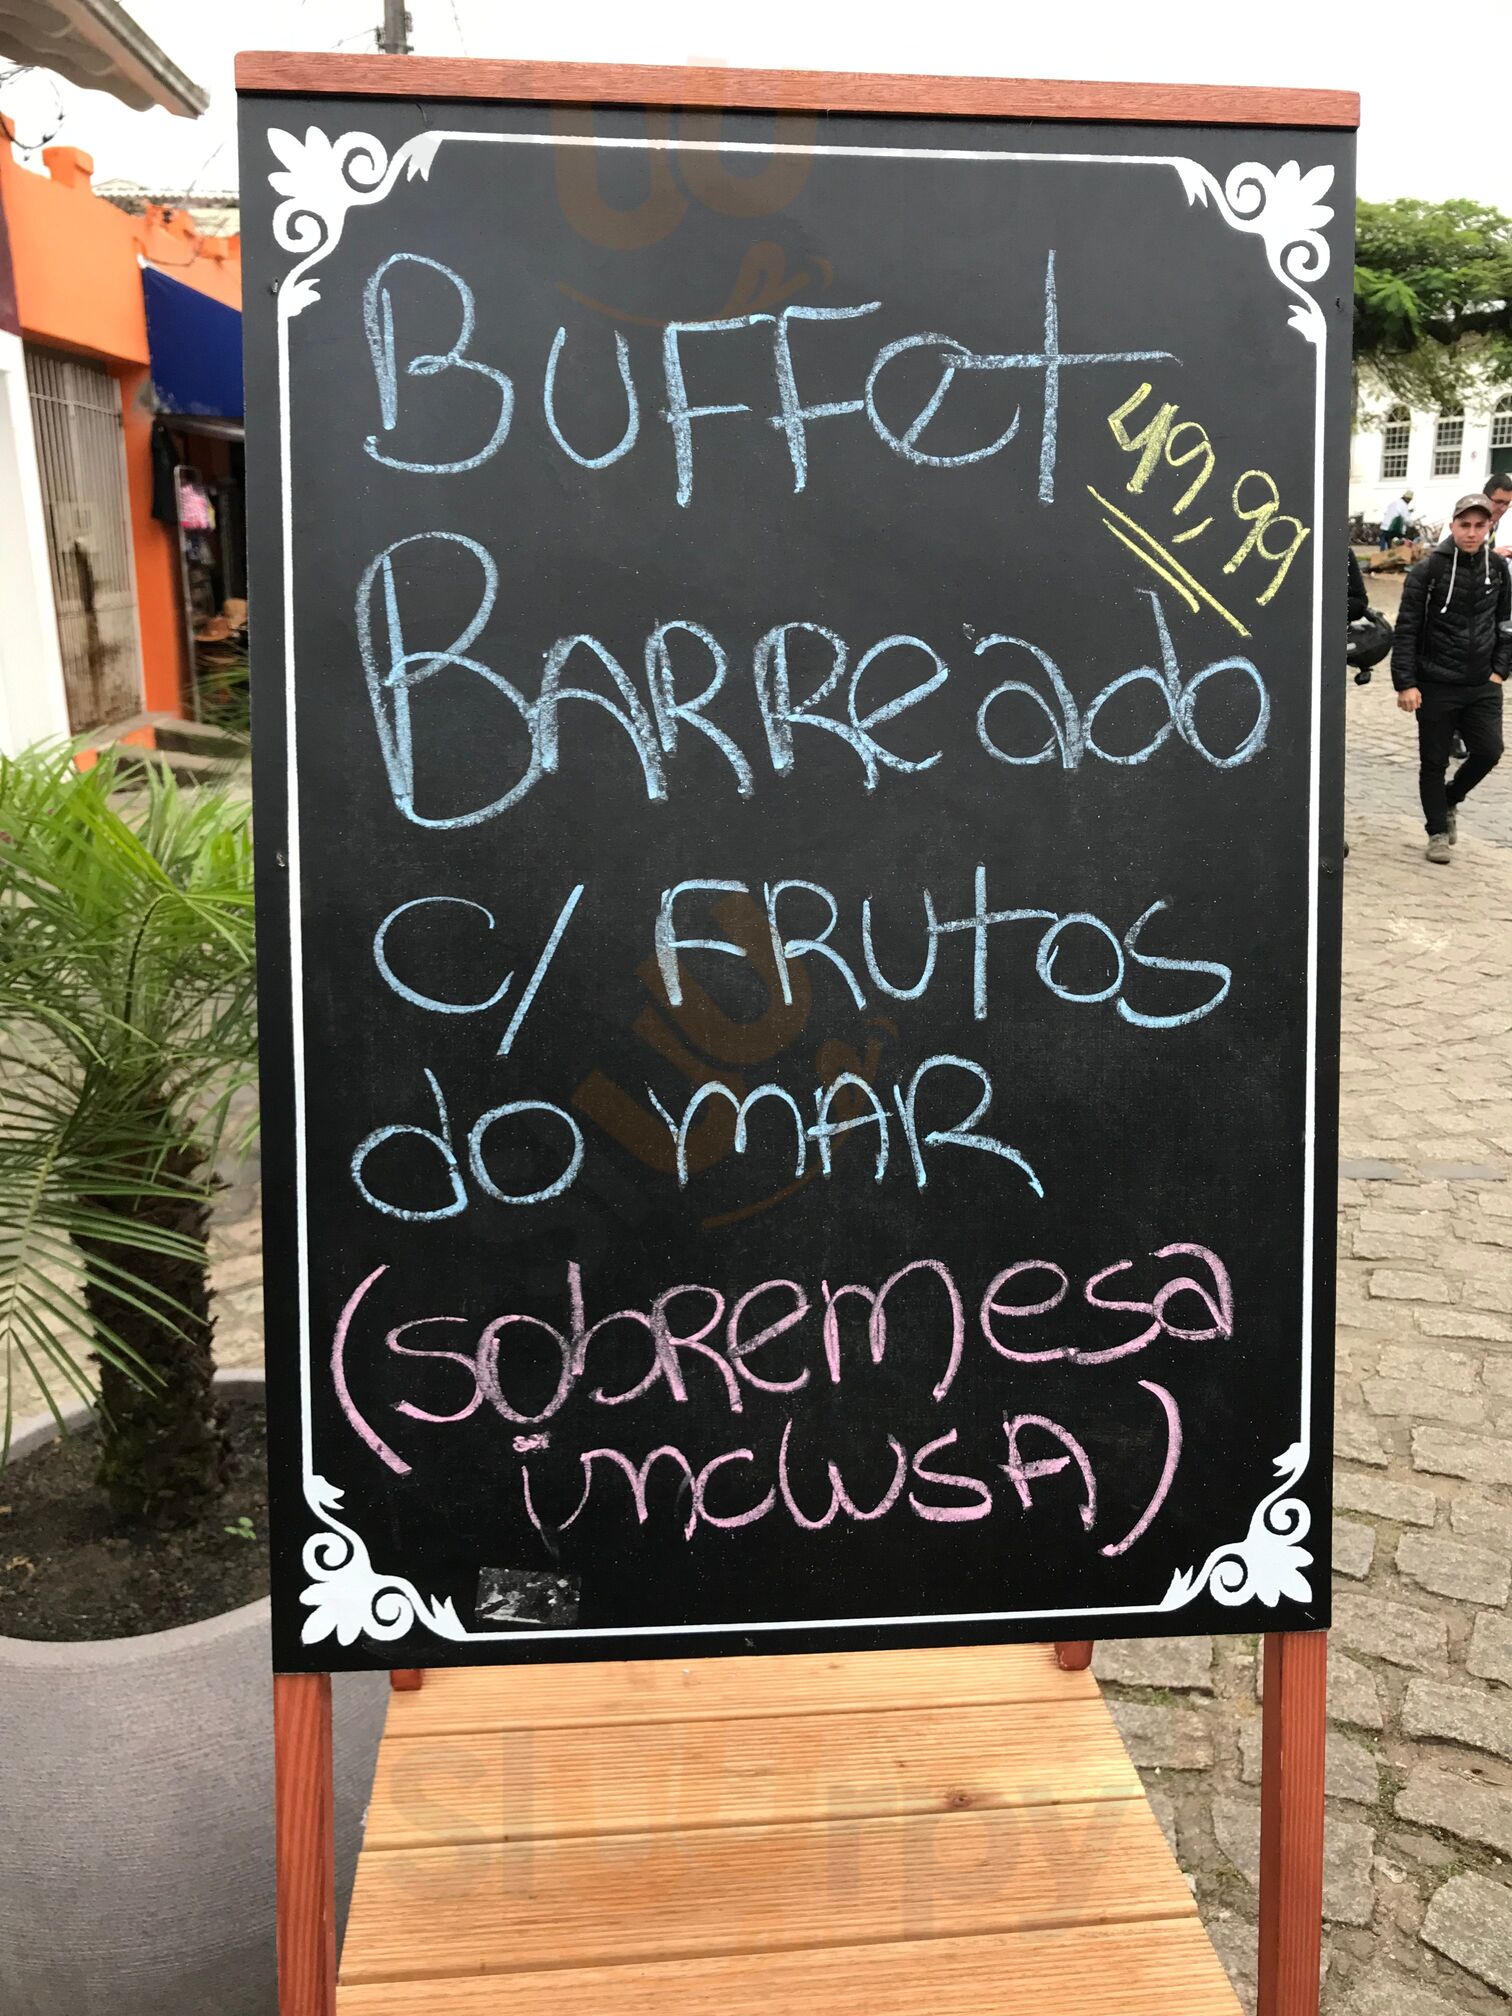 Buffet
49,99
Barreado
c/ Frutos
do mar
(sobremesa
inclusa)
sluurpy